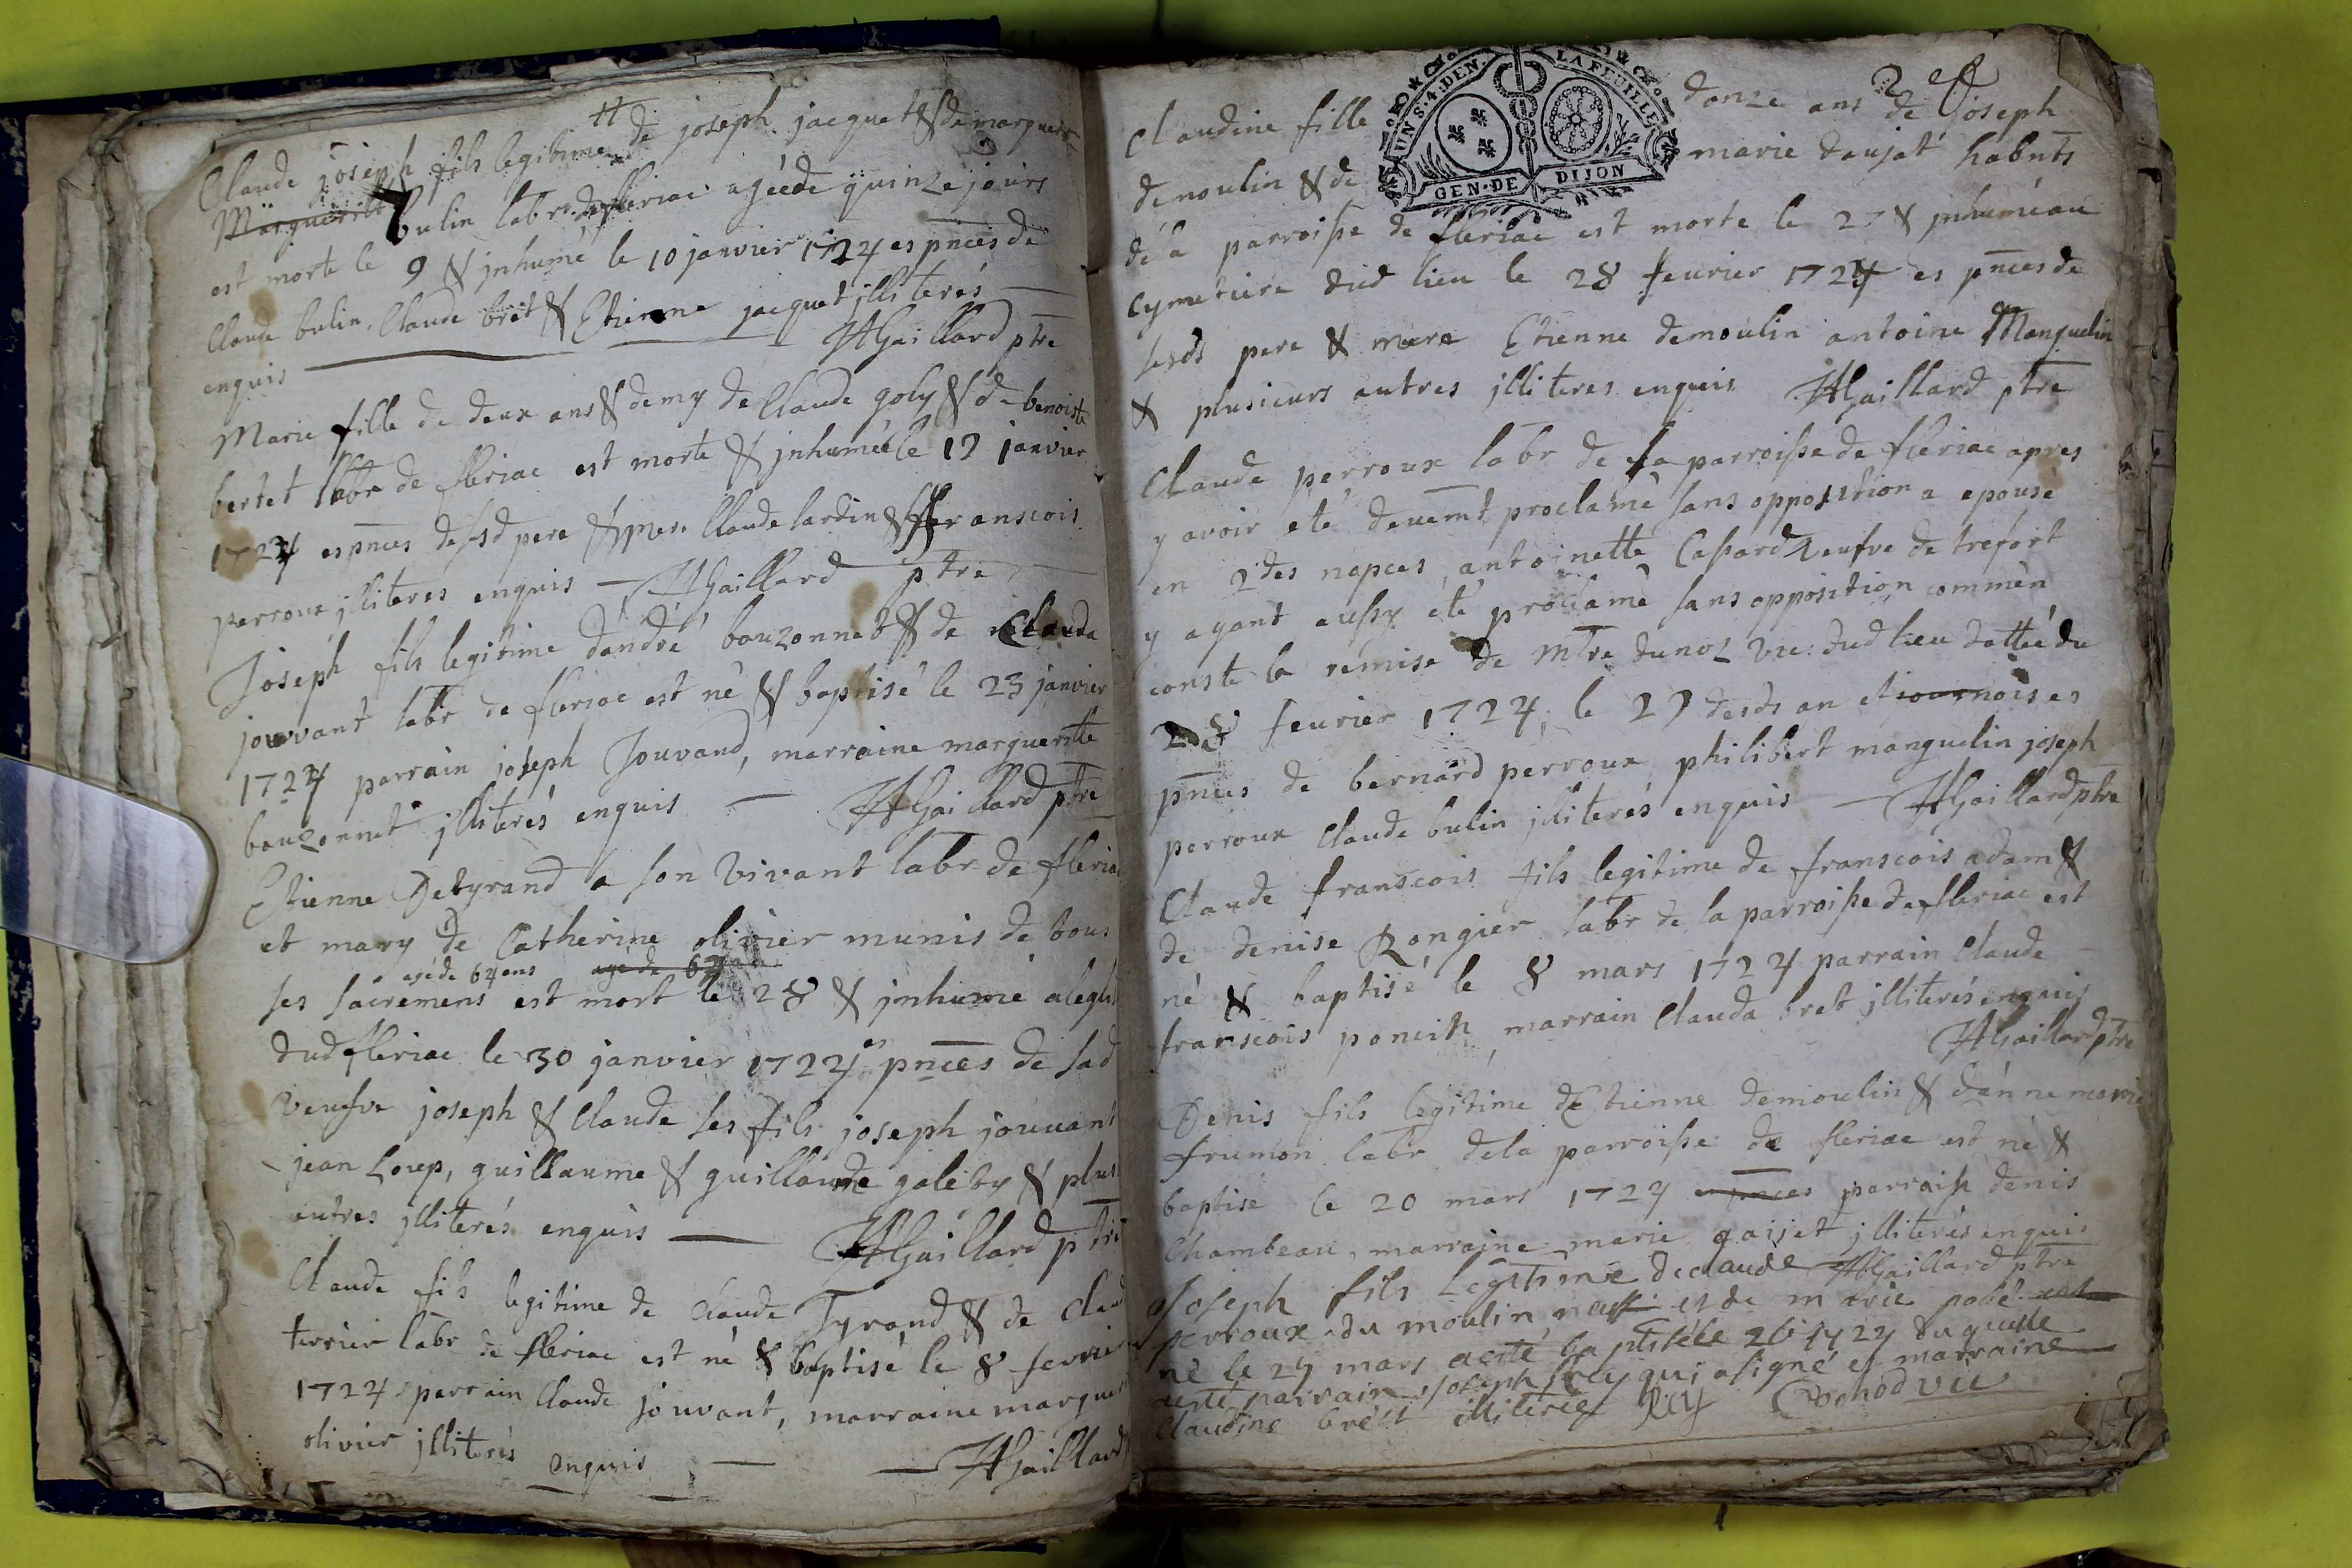 Claude joseph fils legitime # de joseph jacquet & de marguerite
Margueritte bulin labr de fleriac agéé de quinze jours
est morte le 9 & jnhumé le 10 janvier 1724 es pnces de
Claude bulin, Claude bret & Etienne jacquet jlliterés
enquis JHGaillard ptre
Marie fille de deux ans & demy de Claude goly & de benoiste
bertet labr de fleriac est morte & jnhumée le 12 janvier
1724 es pnces desesd pere & mere Claude sardin & franscois
perroux jlliteres enquis — JHGaillard ptre
Joseph fils legitime dandré bouzonnet & de Clauda
jouvant labr de fleriac est né & baptisé le 23 janvier
1724 parrain joseph Jouvand, marraine margueritte
bouzonnet jlliterés enquis — JHGaillard ptre
Etienne Detyrand a son vivant labr de fleriac
et mary de Catherine olivier munis de tous
agé de 64 ans agé de 64 ans
ses sacremens est mort le 28 & jnhumé a leglis
dud fleriac le 30 janvier 1724 es pnces de sad
veufve joseph & Claude ses fils joseph jouvant
jean Loup, guillaume & guillaume galeby & plus
autres jlliterés enquis — JHGaillard ptre
Claude fils legitime de Claude Tyrand & de Claud
terrier labr de fleriac est né & baptisé le 8 fevrier
1724 parrain Claude jouvant, marraine marguer
olivier jlliterés enquis — JHGaillard
Claudine fille donze ans de Joseph
UN S. 4. DEN. LA FEUILLE
GEN. DE DIJON
demoulin & de marie daujat habnts
de la parroisse de fleriac est morte le 27 & jnhumé au
cymetiere dud lieu le 28 feurier 1724 es pnces de
sesds pere & mere Etienne demoulin antoine Manguelin
& plusieurs autres jlliteres enquis JHGaillard ptre
Claude perroux labr de la parroisse de fleriac apres
y avoir eté deuemt proclamé sans opposition a epousé
en 2des nopces antoinette Cassard veufve de trefort
y ayant aussy eté proclamé sans opposition comme en
conste la remise de Mtre dunoz vic: dud lieu dattée du
28 feurier 1724, le 29 desds an et mois es
pnces de bernard perroux philibert manguelin joseph
perroux Claude bulin jlliterés enquis — JHGaillard ptre
Claude franscois fils legitime de franscois adam &
de denise Rongier labr de la parroisse de fleriac est
né & baptisé le 8 mars 1724 parrain Claude
franscois poncin, marrain Clauda bret jlliterés enquis
JHGaillard ptre
Denis fils legitime dEtienne demoulin & danne marie
frumon labr dela parroisse de fleriac est né &
baptisé le 20 mars 1724 es pnces parrain denis
Chambeau, marraine marie gaiset jlliterés enquis
JHGaillard ptre
Joseph fils Legitime de claude
perroux du moulin et de marie pobé est
né le 25 mars a esté baptisé le 26 1724 duquel le
a esté parrain Joseph Rey qui a signé et marraine
Claudine brest illiteree Rey Cochod vic